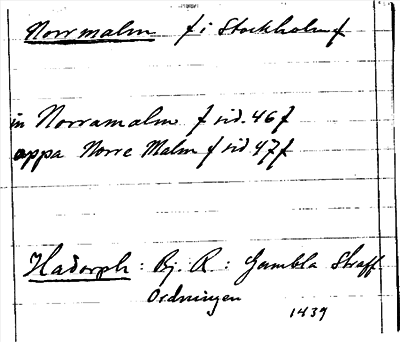 Norrmalm f i Stockholm f
in Norramalm f sid. 46 f
oppa Norre Malm f sid 47 f
Hadorph: Bj. R: Gambla Straff
Ordningen
1439